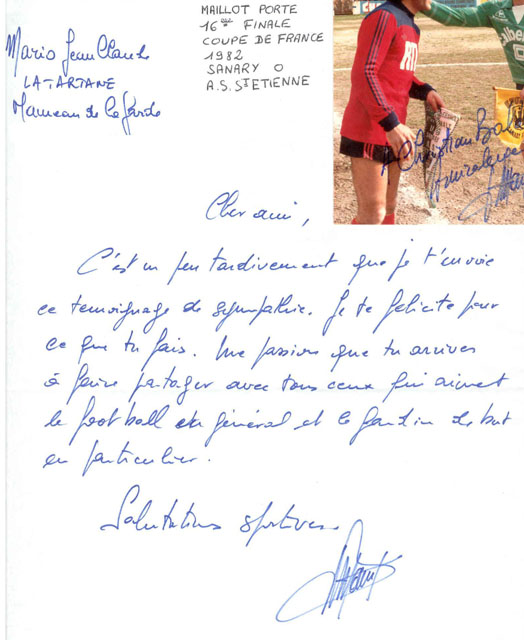 Mario Jean Claude
LA TARTANE
Hameau de la Garde
MAILLOT PORTE
16ème FINALE
COUPE DE FRANCE
1982
SANARY O
A.S. ST ETIENNE
A Christian
Cher ami,
C'est un peu tardivement que je t'envoie
ce temoignage de sympathie. Je te felicite pour
ce que tu fais. Une passion que tu arrives
à faire partager avec tous ceux qui aiment
le football en général et le gardien de but
en particulier.
Salutations sportives